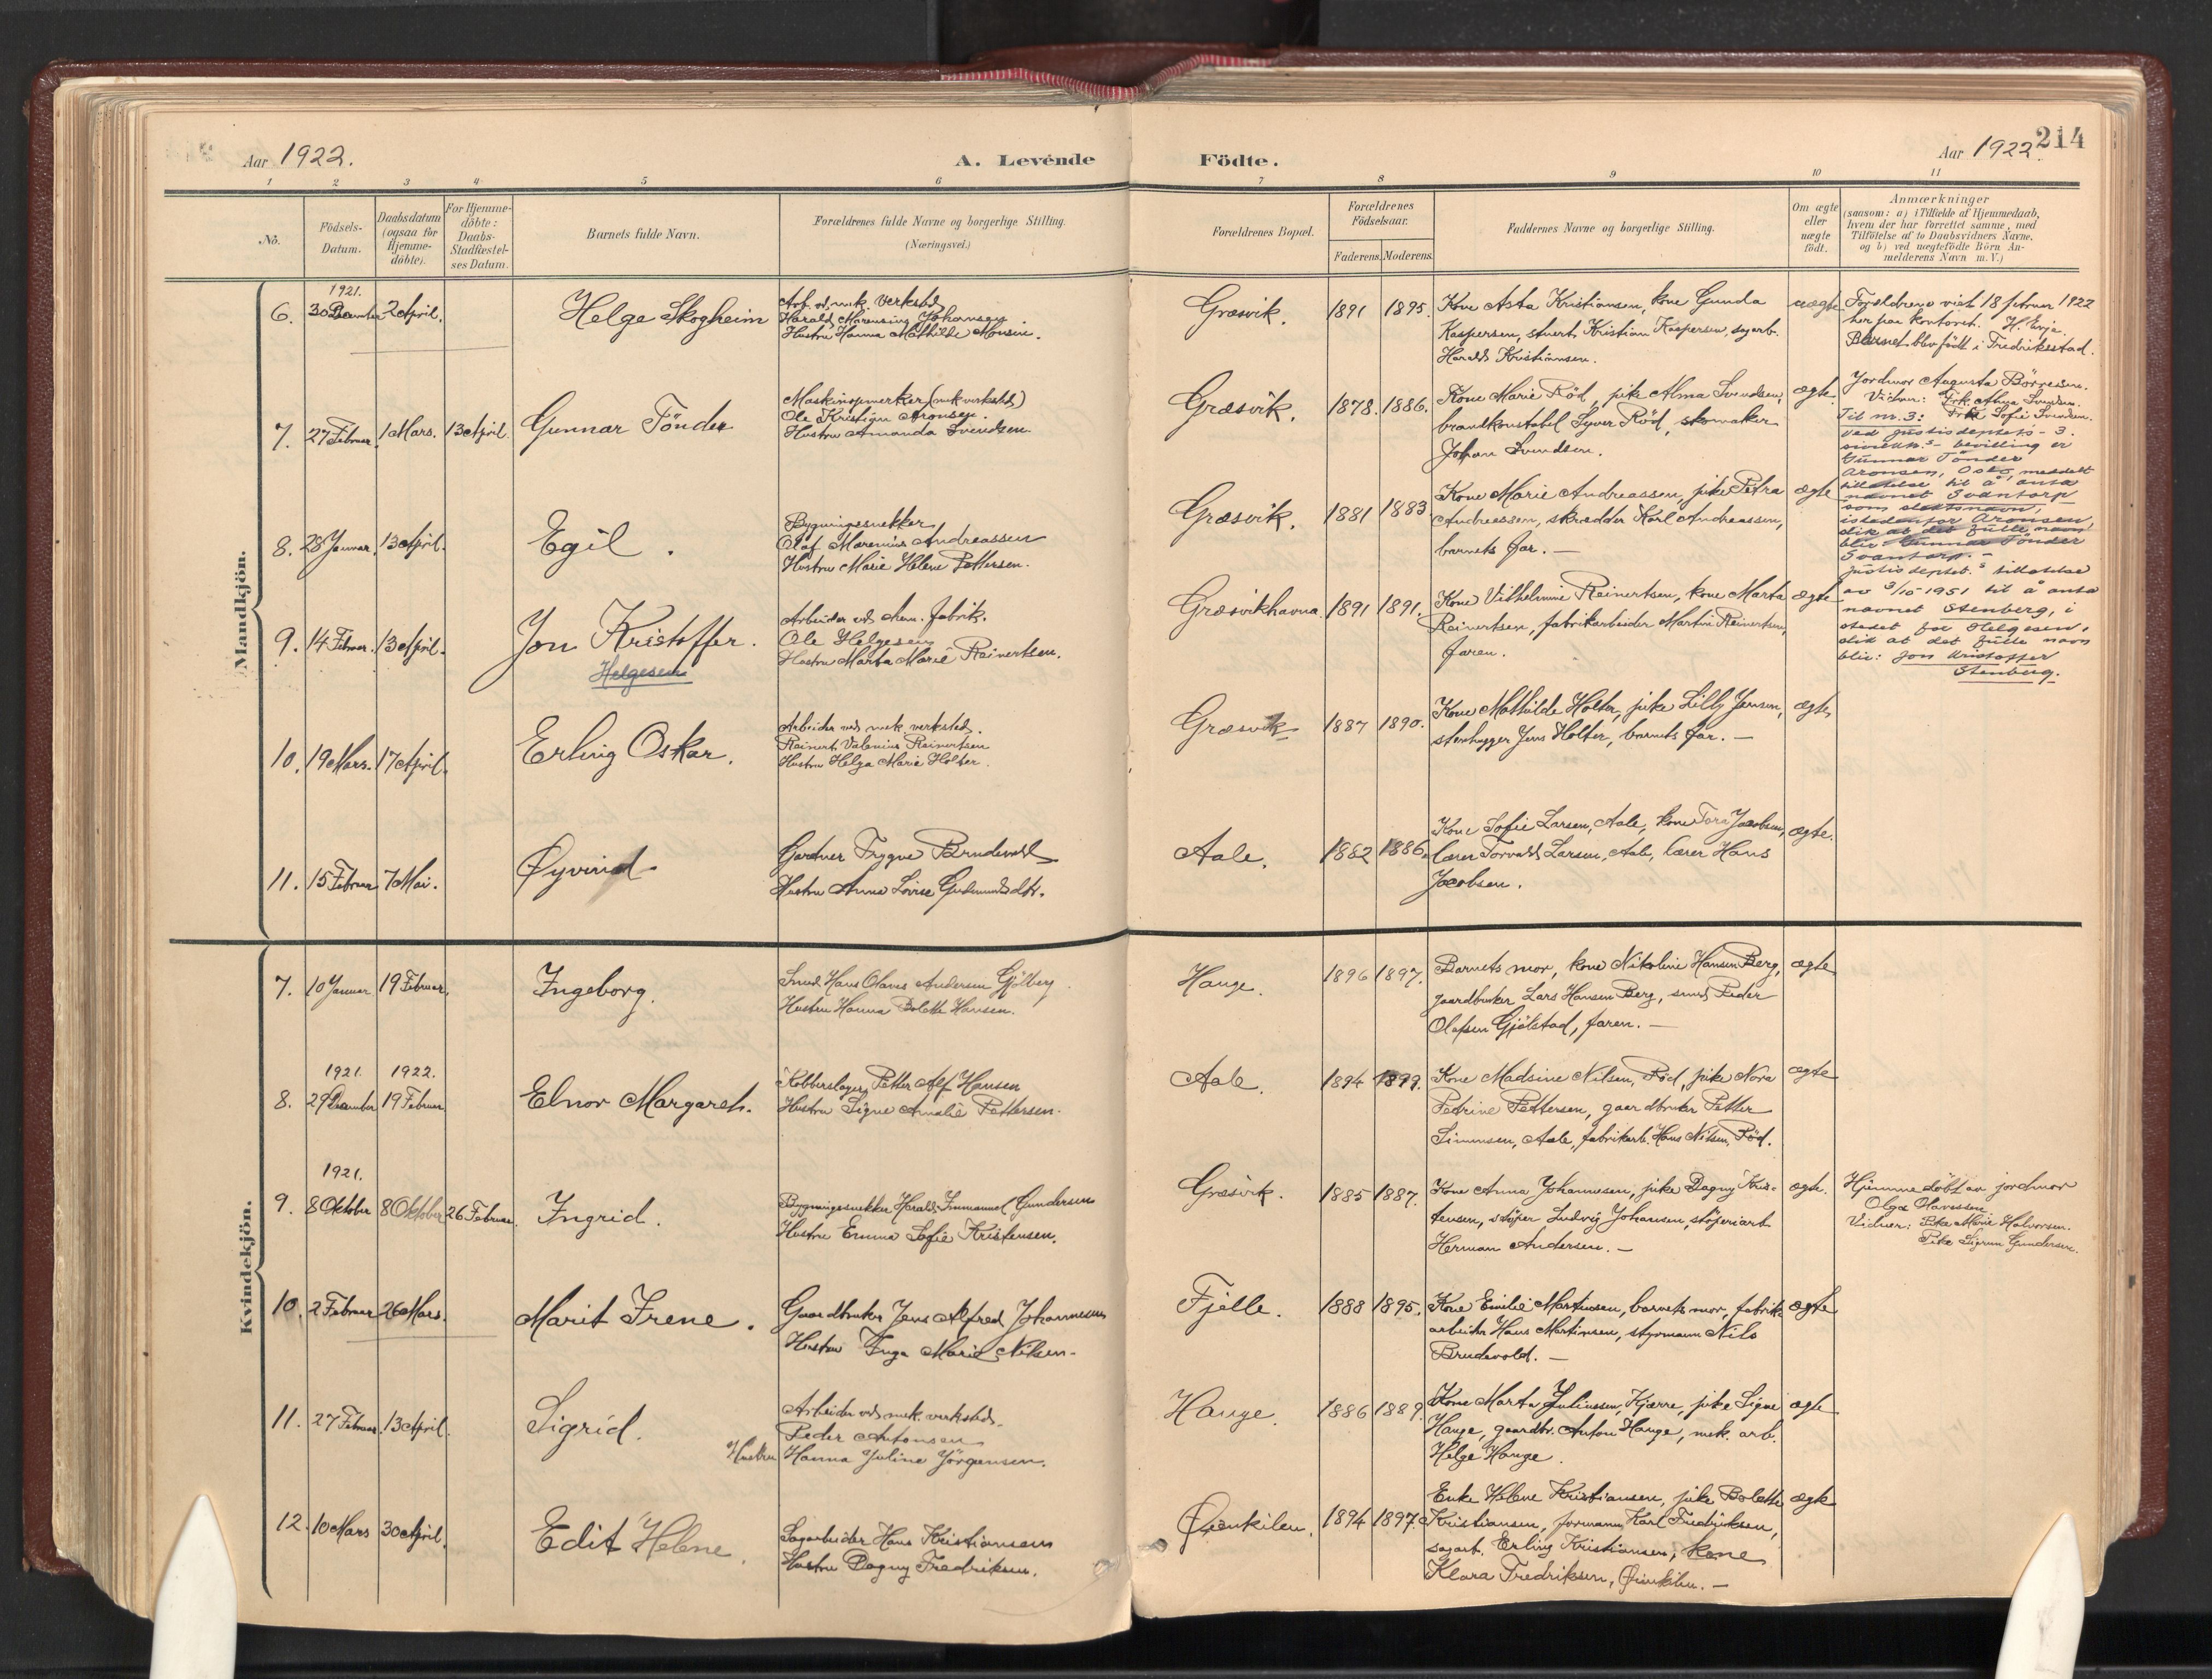 Aar 1922.
A. Levende
Födte.
Aar 1922.
214
1 2 3 4 5 6 7 8 9 10 11
No.
Födsels-
Datum.
Daabsdatum
(ogsaa for
Hjemme-
döbte).
For Hjemme-
döbte:
Daabs-
Stadfæstel-
ses Datum.
Barnets fulde Navn.
Forældrenes fulde Navne og borgerlige Stilling.
(Næringsvei.)
Forældrenes Bopæl.
Forældrenes
Födselsaar.
Faderens. Moderens.
Faddernes Navne og borgerlige Stilling.
Om ægte
eller
uægte
födt.
Anmærkninger
(saasom: a) i Tilfælde af Hjemmedaab,
hvem der har forrettet samme, med
Tilföielse af to Daabsvidners Navne,
og b) ved uægtefödte Börn An-
melderens Navn m. V.)
Mandkjön.
1921.
6. 30 December 2 April. Helge Skogheim
Arb. ved mek. verksted
Harald Marensius Johansen
Hustru Hanna Mathilde Monsen.
Græsvik. 1891 1895.
Kone Asta Kristiansen, kone Gunda
Kaspersen, stuert Kristian Kaspersen, sagarb.
Harald Kristiansen.
uægte
Forældrene viet 18 februar 1922
her paa kontoret. H. Evje.
Barnet blev født i Fredrikstad.
7. 27 Februar. 1 Mars. 13 April. Gunnar Tönder
Maskinopmerker (mek verksted)
Ole Kristian Aronsen.
Hustru Amanda Svendsen.
Græsvik. 1878. 1886.
Kone Marie Röd, pike Alma Svendsen,
brandkonstabel Syver Röd, skomaker
Johan Svendsen.
ægte.
Jordmor Augusta Börresen.
Vidner: Frk. Alma Svendsen.
Frk. Sofie Svendsen.
Til nr. 3:
ved justisdeptets - 3.
bevilling er
Gunnar Tönder
Aronsen, Oslo, meddelt
tillatelse til å anta
navnet Svantorp
som slektsnavn,
istedenfor Aronsen,
slik at det fulle navn
blir Gunnar Tönder
Svantorp. -
8. 28 Januar. 13 April. Egil.
Bygningssnekker
Olaf Marenius Andreassen
Hustru Marie Helene Pettersen.
Græsvik. 1881 1883
Kone Marie Andreassen, pike Petra
Andreassen, skrædder Karl Andreassen,
barnets far. —
ægte
9. 14 Februar. 13 April. Jon Kristoffer.
Helgesen
Arbeider ved chem. fabrik.
Ole Helgesen
Hustru Marta Marie Reinertsen.
Græsvikhavna 1891 1891.
Kone Vilhelmine Reinertsen, kone Marta
Reinertsen, fabrikarbeider Martin Reinertsen,
faren.
ægte
Justisdeptet.s tillatelse
av 3/10-1951 til å anta
navnet Stenberg, i
stedet for Helgesen,
slik at det fulle navn
blir: Jon Kristoffer
Stenberg.
10. 19 Mars. 17 April. Erling Oskar.
Arbeider ved mek. verksted.
Reinert Valenius Reinertsen
Hustru Helga Marie Holter.
Græsvik 1887 1890.
Kone Mathilde Holter, pike Lilly Jensen,
stenhugger Jens Holter, barnets far. —
ægte
11. 15 Februar 7 Mai. Øyvind.
Gartner Trygve Brudevold
Hustru Anna Lovise Gudmundsdtr.
Aale. 1882 1886.
Kone Sofie Larsen, Aale, kone Tora Jacobsen,
lærer Torvald Larsen, Aale, lærer Hans
Jacobsen.
ægte.
Kvindekjön.
7. 10 Januar 19 Februar. Ingeborg.
Smed Hans Olaves Andersen Gjölberg.
Hustru Hanna Bolette Hansen.
Hauge. 1896 1897.
Barnets mor, kone Nikoline Hansen Berg,
gaardbruker Lars Hansen Berg, smed Peder
Olafsen Gjölstad, faren. —
ægte
1921. 1922.
8. 29 December 19 Februar Elnor Margareth.
Kobberslager Petter Alf Hansen
Hustru Signe Amalie Pettersen.
Aale. 1894 1899.
Kone Madsine Nilsen, Röd, pike Nora
Petrine Pettersen, gaardbruker Petter
Simensen, Aale, fabrikarb. Hans Nilsen, Röd.
ægte
1921.
9. 8 Oktober 8 Oktober 26 Februar. Ingrid.
Bygningssnekker Harald Immanuel Gundersen
Hustru Emma Sofie Kristensen.
Græsvik. 1885 1887.
Kone Anna Johannesen, pike Dagny Kris-
tensen, støper Ludvig Johansen, støperiarb.
Herman Andersen. —
ægte.
Hjemmedöbt av jordmor
Olga Olavesen
Vidner: Pike Marie Halvorsen.
Pike Sigrun Gundersen.
10. 2 Februar 26 Mars. Marit Irene.
Gaardbruker Jens Alfred Johannesen
Hustru Inga Marie Nilsen.
Fjelle. 1888 1895.
Kone Emilie Martinsen, barnets mor, fabrik-
arbeider Hans Martinsen, styrmann Nils
Brudevold. —
ægte
11. 27 Februar 13 April. Sigrid.
Arbeider ved mek. verksted.
Peder Antonsen
Hustru Hanna Juline Jörgensen.
Hauge. 1886 1889
Kone Marta Juliussen, Kjærre, pike Signe
Hauge, gaardbr. Anton Hauge, mek. arb.
Helge Hauge.
ægte
12. 10 Mars 30 April. Edit Helene.
Sagarbeider Hans Kristiansen
Hustru Dagny Fredriksen.
Øienkilen. 1894 1897.
Enke Helene Kristiansen, pike Bolette
Kristiansen, formann Karl Fredriksen,
sagarb. Erling Kristiansen, kone
Klara Fredriksen, Øienkilen. —
ægte